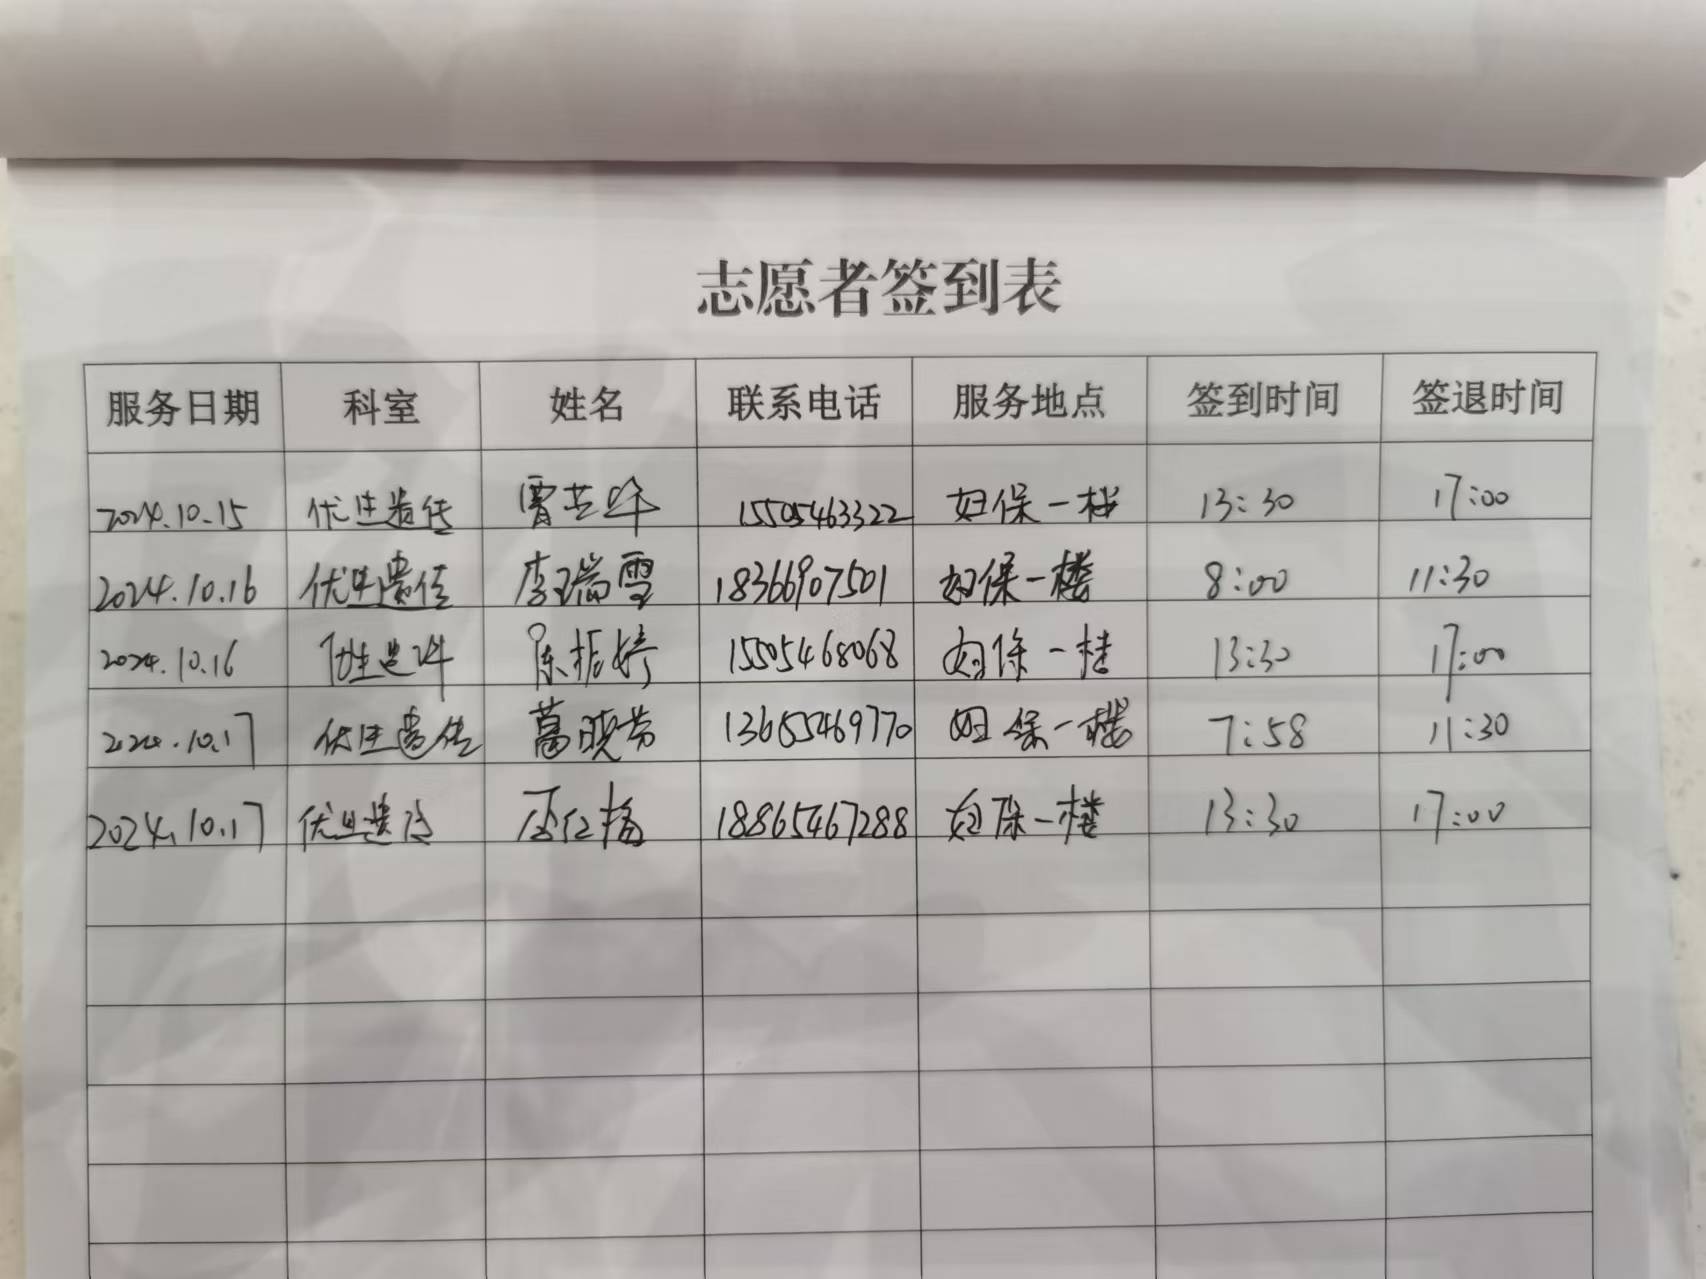 志愿者签到表
服务日期 科室 姓名 联系电话 服务地点 签到时间 签退时间
2024.10.15 优生遗传 15505463322 妇保一楼 13:30 17:00
2024.10.16 优生遗传 李瑞雪 18366907501 妇保一楼 8:00 11:30
2024.10.16 优生遗传 陈振婷 15505468068 妇保一楼 13:30 17:00
2024.10.17 优生遗传 葛晓芳 13655469770 妇保一楼 7:58 11:30
2024.10.17 优生遗传 18865467288 妇保一楼 13:30 17:00